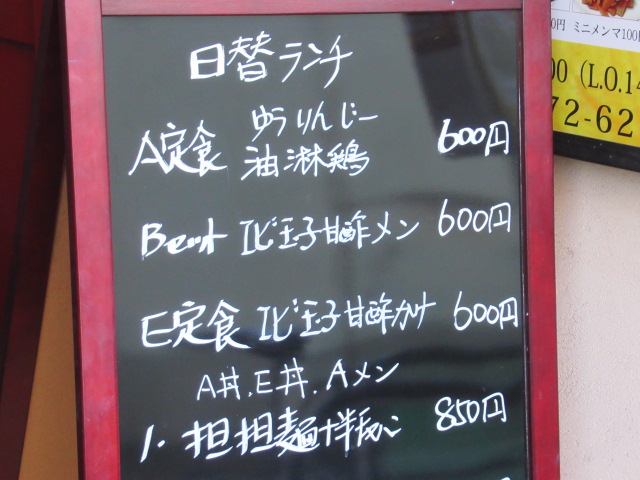 日替ランチ
ゆうりんじー
A定食 油淋鶏 600円
Bセット エビ玉子甘酢メン 600円
E定食 エビ玉子甘酢カケ 600円
A丼.E丼.Aメン
1. 担担麺+半チャーハン 850円
0円 ミニメンマ100円
00 (L.O.14
72-62